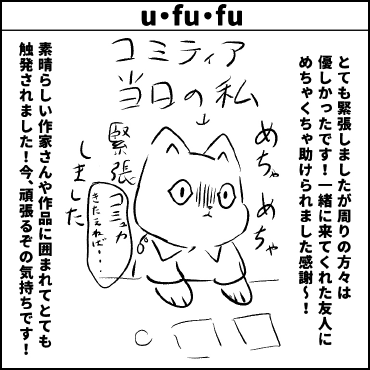 u・fu・fu
とても緊張しましたが周りの方々は
優しかったです！一緒に来てくれた友人に
めちゃくちゃ助けられました感謝〜！
コミティア
当日の私
↓
めちゃめちゃ
緊張
しました
コミュ力
きたえねば・・・
素晴らしい作家さんや作品に囲まれてとても
触発されました！今、頑張るぞの気持ちです！